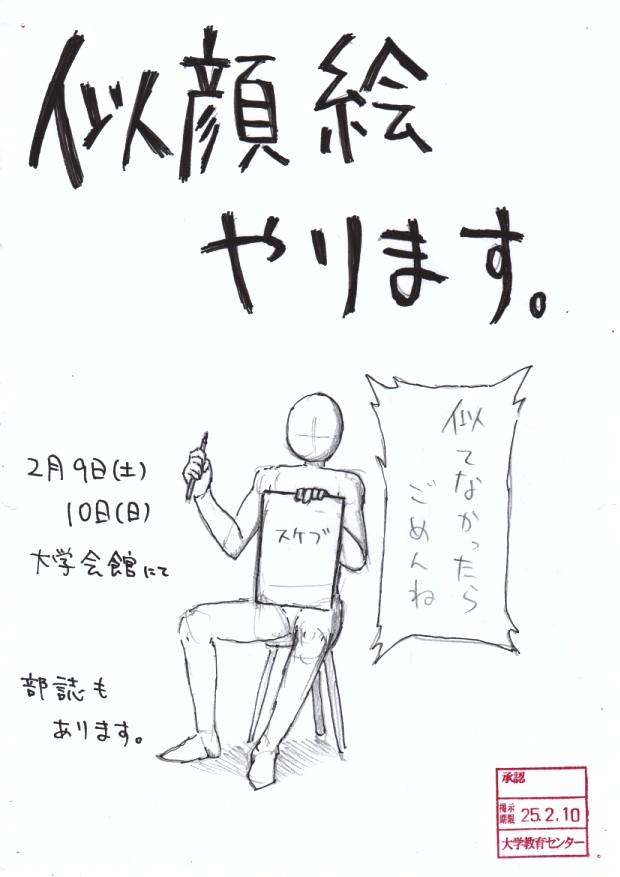 似顔絵
やります。
2月9日(土)
10日(日)
大学会館にて
スケブ
似てなかったら
ごめんね
部誌も
あります。
承認
掲示期限 25.2.10
大学教育センター